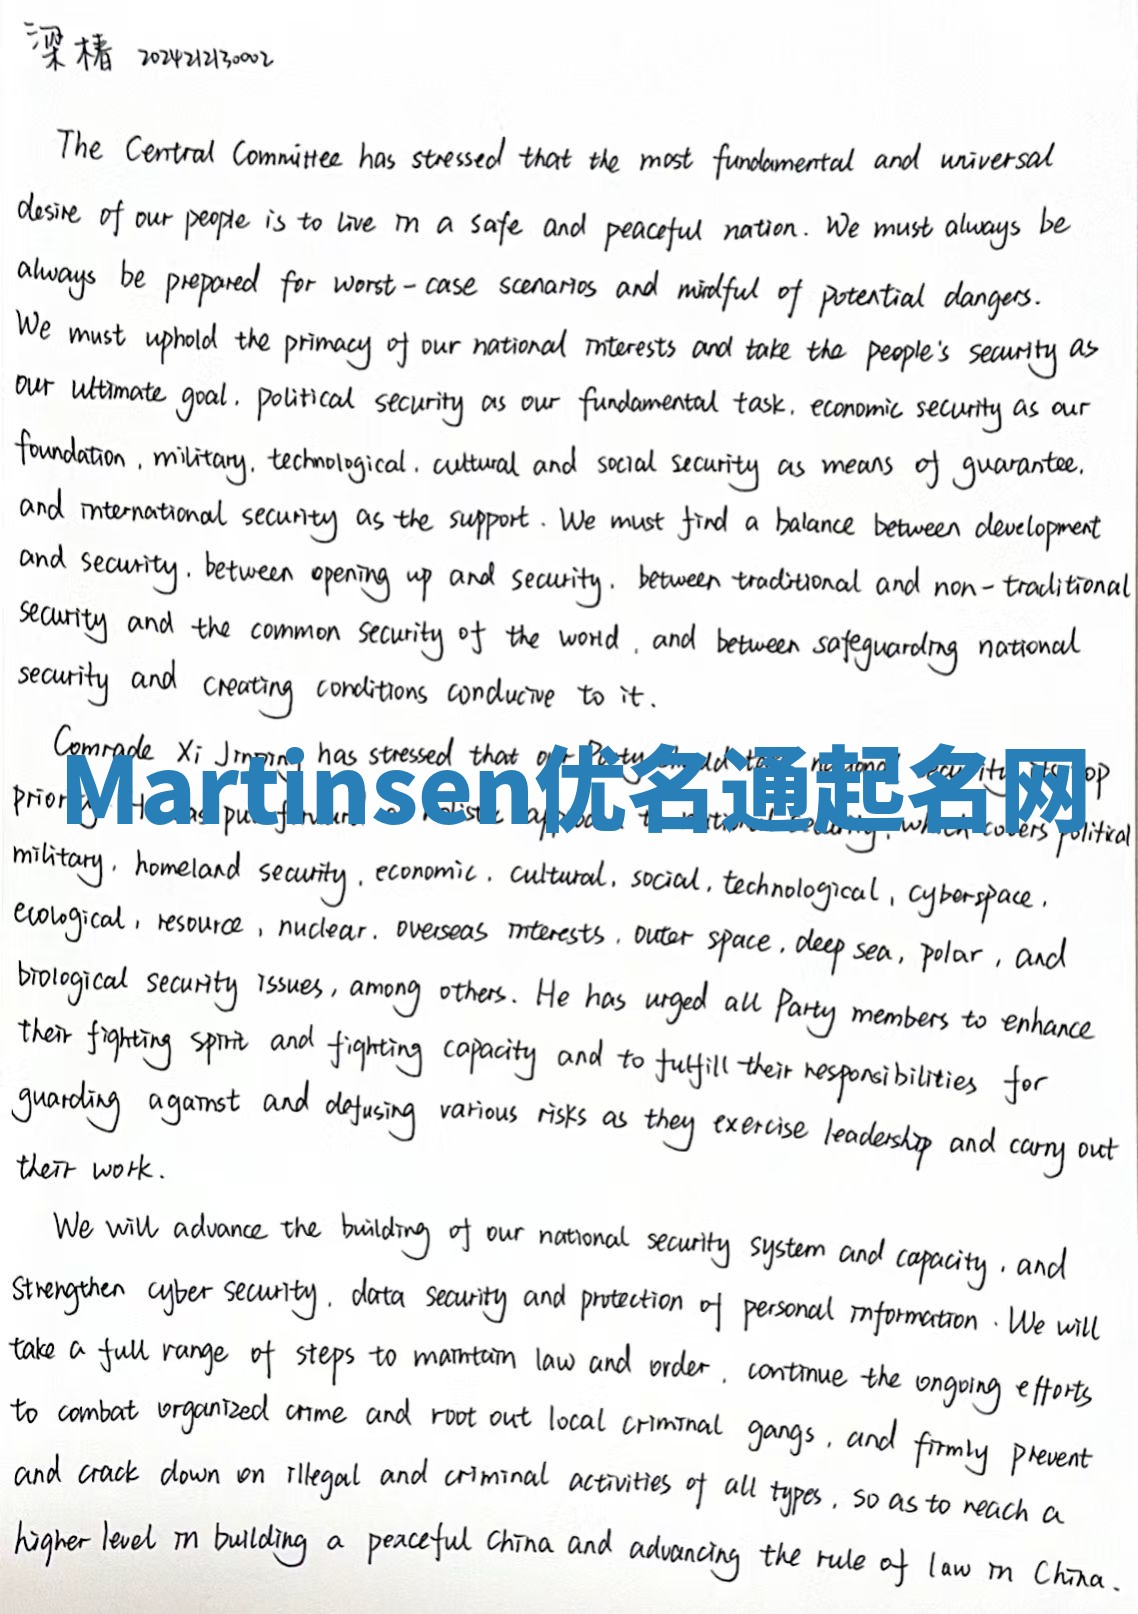 梁椿 2024212130002
The Central Committee has stressed that the most fundamental and universal
desire of our people is to live in a safe and peaceful nation. We must always be
always be prepared for worst-case scenarios and mindful of potential dangers.
We must uphold the primacy of our national interests and take the people's security as
our ultimate goal, political security as our fundamental task, economic security as our
foundation, military, technological, cultural and social security as means of guarantee,
and international security as the support. We must find a balance between development
and security, between opening up and security, between traditional and non-traditional
security and the common security of the world, and between safeguarding national
security and creating conditions conducive to it.
Comrade Xi Jinping has stressed that our Party
Martinsen优名通起名网
political
military, homeland security, economic, cultural, social, technological, cyberspace,
ecological, resource, nuclear, overseas interests, outer space, deep sea, polar, and
biological security issues, among others. He has urged all Party members to enhance
their fighting spirit and fighting capacity and to fulfill their responsibilities for
guarding against and defusing various risks as they exercise leadership and carry out
their work.
We will advance the building of our national security system and capacity, and
strengthen cyber security, data security and protection of personal information. We will
take a full range of steps to maintain law and order, continue the ongoing efforts
to combat organized crime and root out local criminal gangs, and firmly prevent
and crack down on illegal and criminal activities of all types, so as to reach a
higher level in building a peaceful China and advancing the rule of law in China.